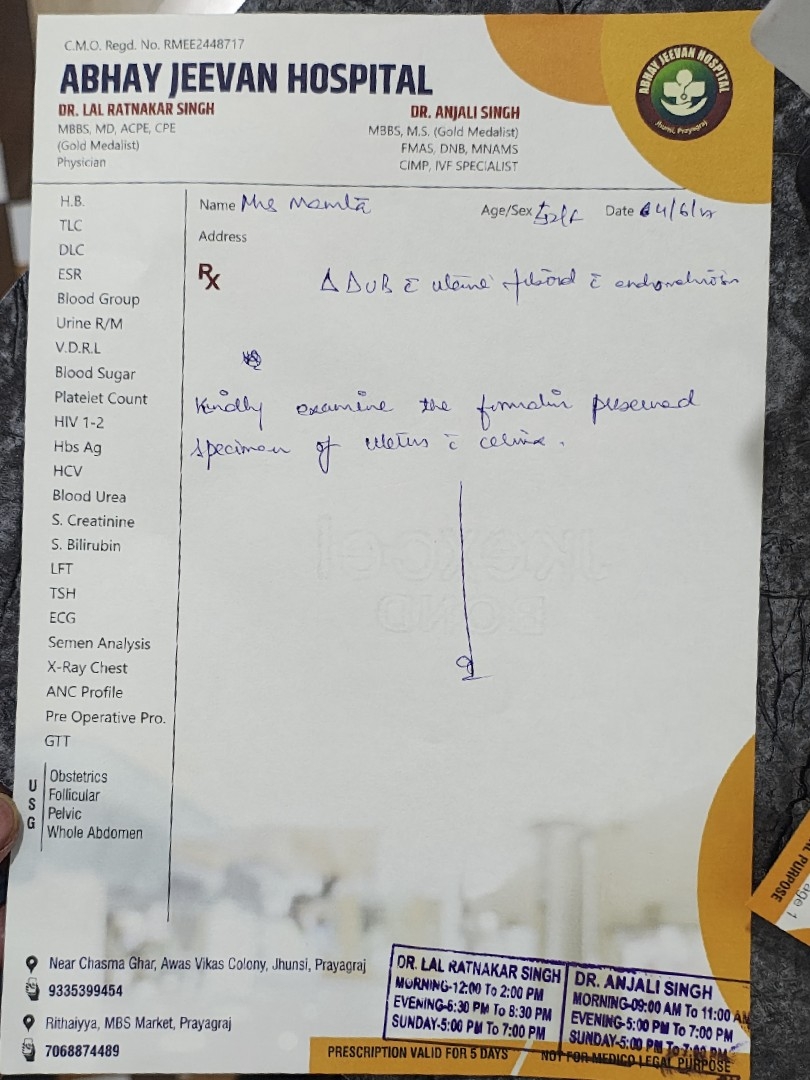 C.M.O. Regd. No. RMEE2448717
ABHAY JEEVAN HOSPITAL
DR. LAL RATNAKAR SINGH
MBBS, MD, ACPE, CPE
(Gold Medalist)
Physician
DR. ANJALI SINGH
MBBS, M.S. (Gold Medalist)
FMAS, DNB, MNAMS
CIMP, IVF SPECIALIST
ABHAY JEEVAN HOSPITAL
Prayagraj
Name Mrs Mamta
Age/Sex
Date 04/6/
Address
Rx
Δ DUB c̄ uterine fibroid c̄
Kindly examine the formalin preserved
specimen of uterus c̄ cervix.
H.B.
TLC
DLC
ESR
Blood Group
Urine R/M
V.D.R.L
Blood Sugar
Platelet Count
HIV 1-2
Hbs Ag
HCV
Blood Urea
S. Creatinine
S. Bilirubin
LFT
TSH
ECG
Semen Analysis
X-Ray Chest
ANC Profile
Pre Operative Pro.
GTT
USG
Obstetrics
Follicular
Pelvic
Whole Abdomen
JKexcel
BOND
Near Chasma Ghar, Awas Vikas Colony, Jhunsi, Prayagraj
9335399454
Rithaiyya, MBS Market, Prayagraj
7068874489
DR. LAL RATNAKAR SINGH
MORNING-12:00 To 2:00 PM
EVENING-6:30 PM To 8:30 PM
SUNDAY-5:00 PM To 7:00 PM
DR. ANJALI SINGH
MORNING-09:00 AM To 11:00 AM
EVENING-5:00 PM To 7:00 PM
SUNDAY-5:00 PM To 7:00 PM
PRESCRIPTION VALID FOR 5 DAYS
NOT FOR MEDICO LEGAL PURPOSE
PURPOSE
age 1